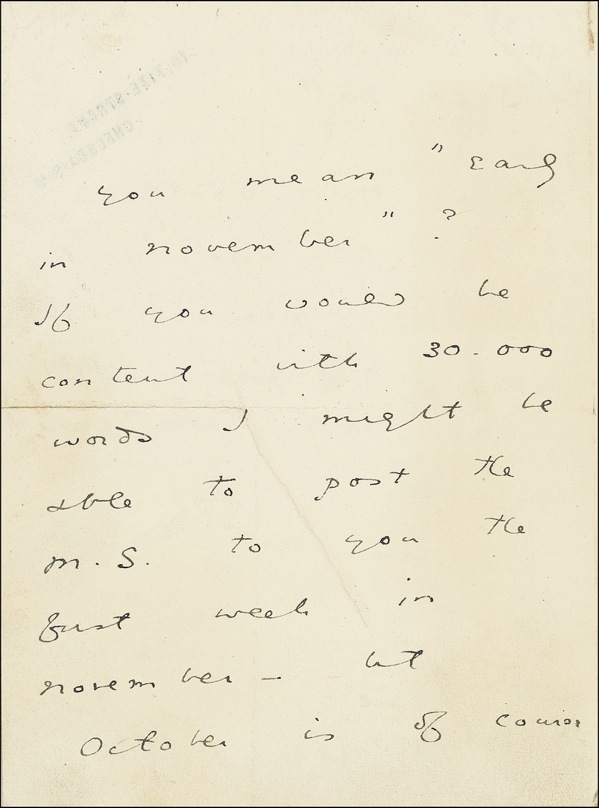 you mean "Early
in november"?
If you would be
content with 30.000
words I might be
able to post the
M.S. to you the
first week in
november – but
October is of course